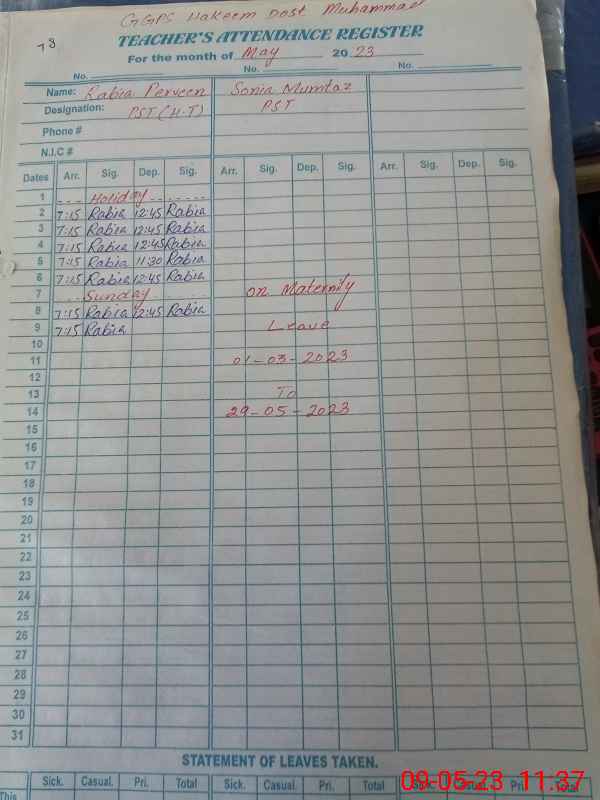 GGPS Hakeem Dost Muhammad
73
TEACHER'S ATTENDANCE REGISTER
For the month of May 2023
No. No. No.
Name: Rabia Perveen Sonia Mumtaz
Designation: PST (H.T) PST
Phone #
N.I.C #
Dates Arr. Sig. Dep. Sig. Arr. Sig. Dep. Sig. Arr. Sig. Dep. Sig.
1 Holiday
2 7:15 Rabia 12:45 Rabia
3 7:15 Rabia 12:45 Rabia
4 7:15 Rabia 12:45 Rabia
5 7:15 Rabia 11:30 Rabia
6 7:15 Rabia 12:45 Rabia
7 Sunday on Maternity
8 7:15 Rabia 12:45 Rabia
9 7:15 Rabia Leave
10
11 01-03-2023
12
13 To
14 29-05-2023
15
16
17
18
19
20
21
22
23
24
25
26
27
28
29
30
31
STATEMENT OF LEAVES TAKEN.
Sick. Casual. Pri. Total Sick. Casual. Pri. Total Sick. Casual. Pri. Total
This
09-05-23 11:37